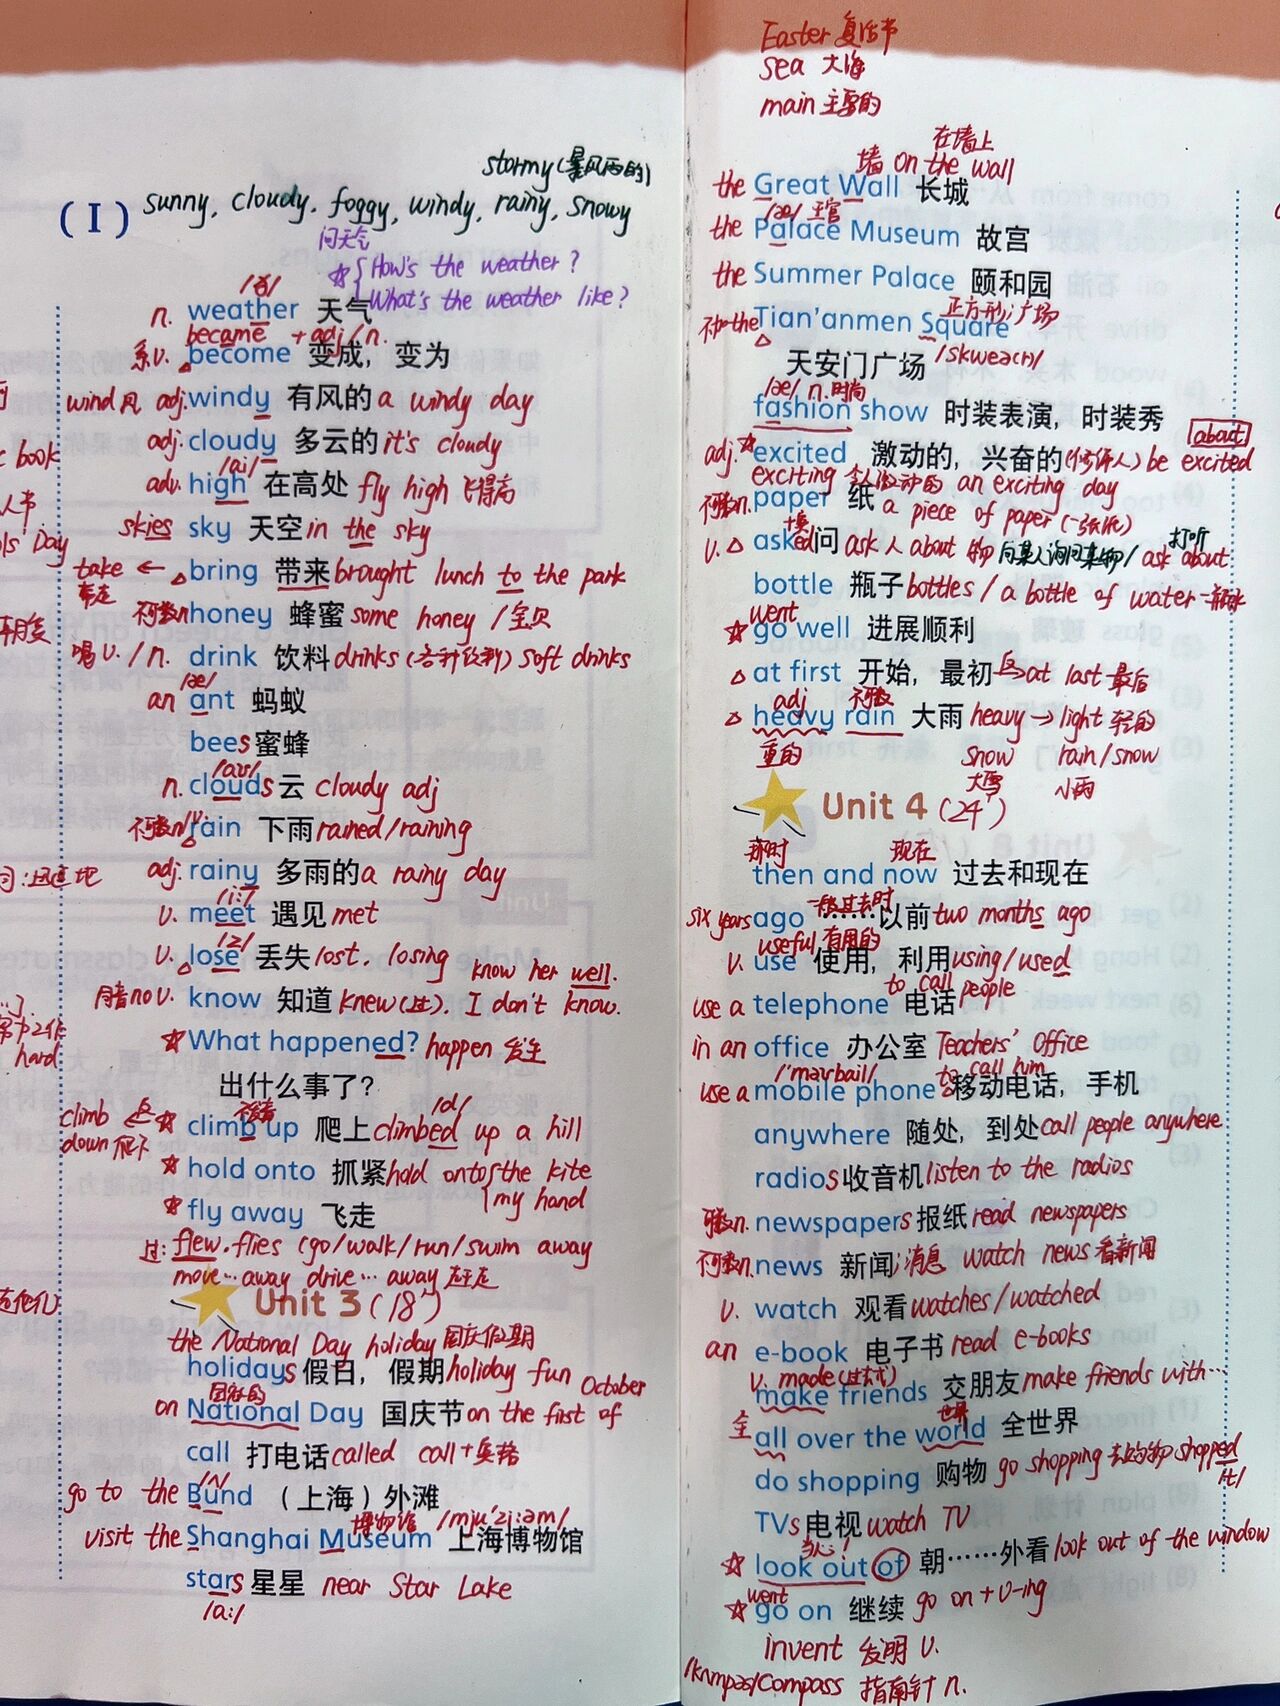 stormy(暴风雨的)
(I) sunny, cloudy, foggy, windy, rainy, snowy
问天气
☆ How's the weather?
What's the weather like?
/ð/
n. weather 天气
became + adj/n.
系v. △ become 变成，变为
wind 风 adj. windy 有风的 a windy day
adj. cloudy 多云的 it's cloudy
/ai/
adv. high 在高处 fly high 飞得高
skies sky 天空 in the sky
take ← △ bring 带来 brought lunch to the park
带走
不可数n honey 蜂蜜 some honey /宝贝
喝 v./n. drink 饮料 drinks (各种饮料) soft drinks
/æ/
an ant 蚂蚁
bees 蜜蜂
/aʊ/
n. clouds 云 cloudy adj
不可数n/v. rain 下雨 rained/raining
adj. rainy 多雨的 a rainy day
/i:/
v. meet 遇见 met
/z/
v. △ lose 丢失 lost. losing
know her well.
同音no v. know 知道 knew(过). I don't know.
☆ What happened? happen 发生
出什么事了？
不发音 /d/
climb ← 反 ☆ climb up 爬上 climbed up a hill
down 爬下
☆ hold onto 抓紧 hold onto the kite
my hand
☆ fly away 飞走
过: flew. flies (go/walk/run/swim away
move…away drive…away 赶走
Unit 3 (18')
the National Day holiday 国庆假期
holidays 假日，假期 holiday fun
国家的 October
on National Day 国庆节 on the first of
call 打电话 called call+宾格
/ʌ/
go to the Bund （上海）外滩
博物馆 /mju'zi:əm/
visit the Shanghai Museum 上海博物馆
stars 星星 near Star Lake
/a:/
c book
人节
ols' Day
hard
Easter 复活节
sea 大海
main 主要的
在墙上
墙 on the wall
the Great Wall 长城
/æ/ 王宫
the Palace Museum 故宫
the Summer Palace 颐和园
正方形；广场
不加the Tian'anmen Square
△ /skweə(r)/
天安门广场
/æ/ n.时尚
fashion show 时装表演，时装秀
about
adj. ☆ excited 激动的，兴奋的(修饰人) be excited
exciting 令人激动的 an exciting day
不可数n. paper 纸 a piece of paper (一张纸)
v. △ ask 问 ask 人 about 物 向某人询问某物/ ask about 打听
ed
bottle 瓶子 bottles / a bottle of water 一瓶水
went
☆ go well 进展顺利
△ at first 开始，最初 反→at last 最后
adj 不可数
△ heavy rain 大雨 heavy → light 轻的
重的 snow rain/snow
大雪 小雨
Unit 4 (24')
那时 现在
then and now 过去和现在
一般过去时
six years ago ……以前 two months ago
useful 有用的
v. use 使用，利用 using/used
to call people
use a telephone 电话
in an office 办公室 Teachers' Office
/'məʊbaɪl/ to call him
use a mobile phone 移动电话，手机
anywhere 随处，到处 call people anywhere
radios 收音机 listen to the radios
可数n. newspapers 报纸 read newspapers
不可数n. news 新闻；消息 watch news 看新闻
v. watch 观看 watches/watched
an e-book 电子书 read e-books
v. made(过去式)
make friends 交朋友 make friends with…
全 世界
all over the world 全世界
do shopping 购物 go shopping 去购物 shopped
/t/
TVs 电视 watch TV
当心！
☆ look out of 朝……外看 look out of the window
went
☆ go on 继续 go on + v-ing
invent 发明 v.
/kʌmpəs/ compass 指南针 n.